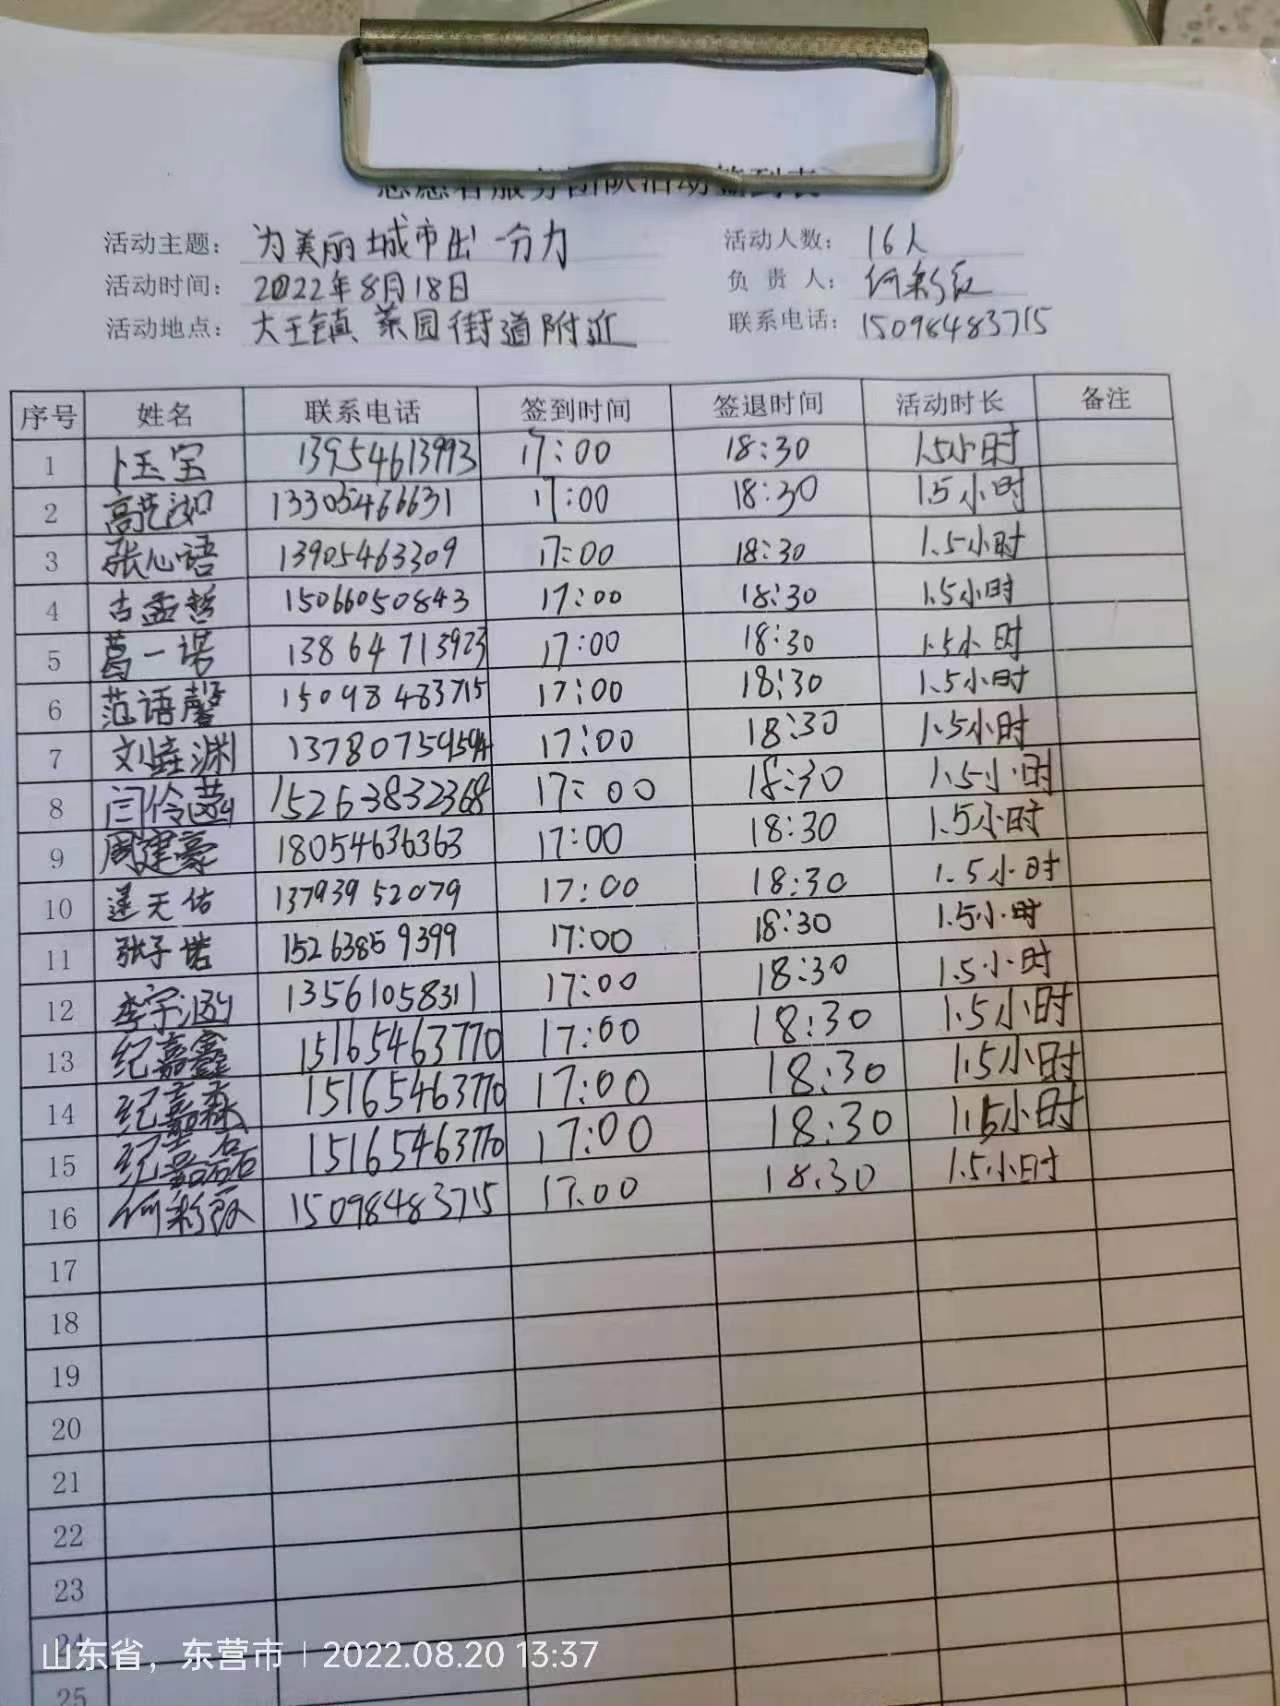 志愿者服务团队活动签到表
活动主题： 为美丽城市出一分力 活动人数： 16人
活动时间： 2022年8月18日 负责人： 何彩
活动地点： 大王镇菜园街道附近 联系电话： 15098483715
序号 姓名 联系电话 签到时间 签退时间 活动时长 备注
1 卜玉宝 13954613993 17:00 18:30 1.5小时
2 高 13305466631 17:00 18:30 1.5小时
3 张心语 13905463309 17:00 18:30 1.5小时
4 古孟哲 15066050843 17:00 18:30 1.5小时
5 葛一诺 13864713923 17:00 18:30 1.5小时
6 范语馨 15098483715 17:00 18:30 1.5小时
7 刘 渊 17:00 18:30 1.5小时
8 闫伶菡 15263832368 17:00 18:30 1.5小时
9 周建豪 18054636363 17:00 18:30 1.5小时
10 天佑 13793952079 17:00 18:30 1.5小时
11 张子诺 15263859399 17:00 18:30 1.5小时
12 李宇涵 13561058311 17:00 18:30 1.5小时
13 纪嘉鑫 15165463770 17:00 18:30 1.5小时
14 纪嘉森 15165463770 17:00 18:30 1.5小时
15 纪嘉磊 15165463770 17:00 18:30 1.5小时
16 何彩 15098483715 17:00 18:30 1.5小时
17
18
19
20
21
22
23
24
山东省，东营市 | 2022.08.20 13:37
25